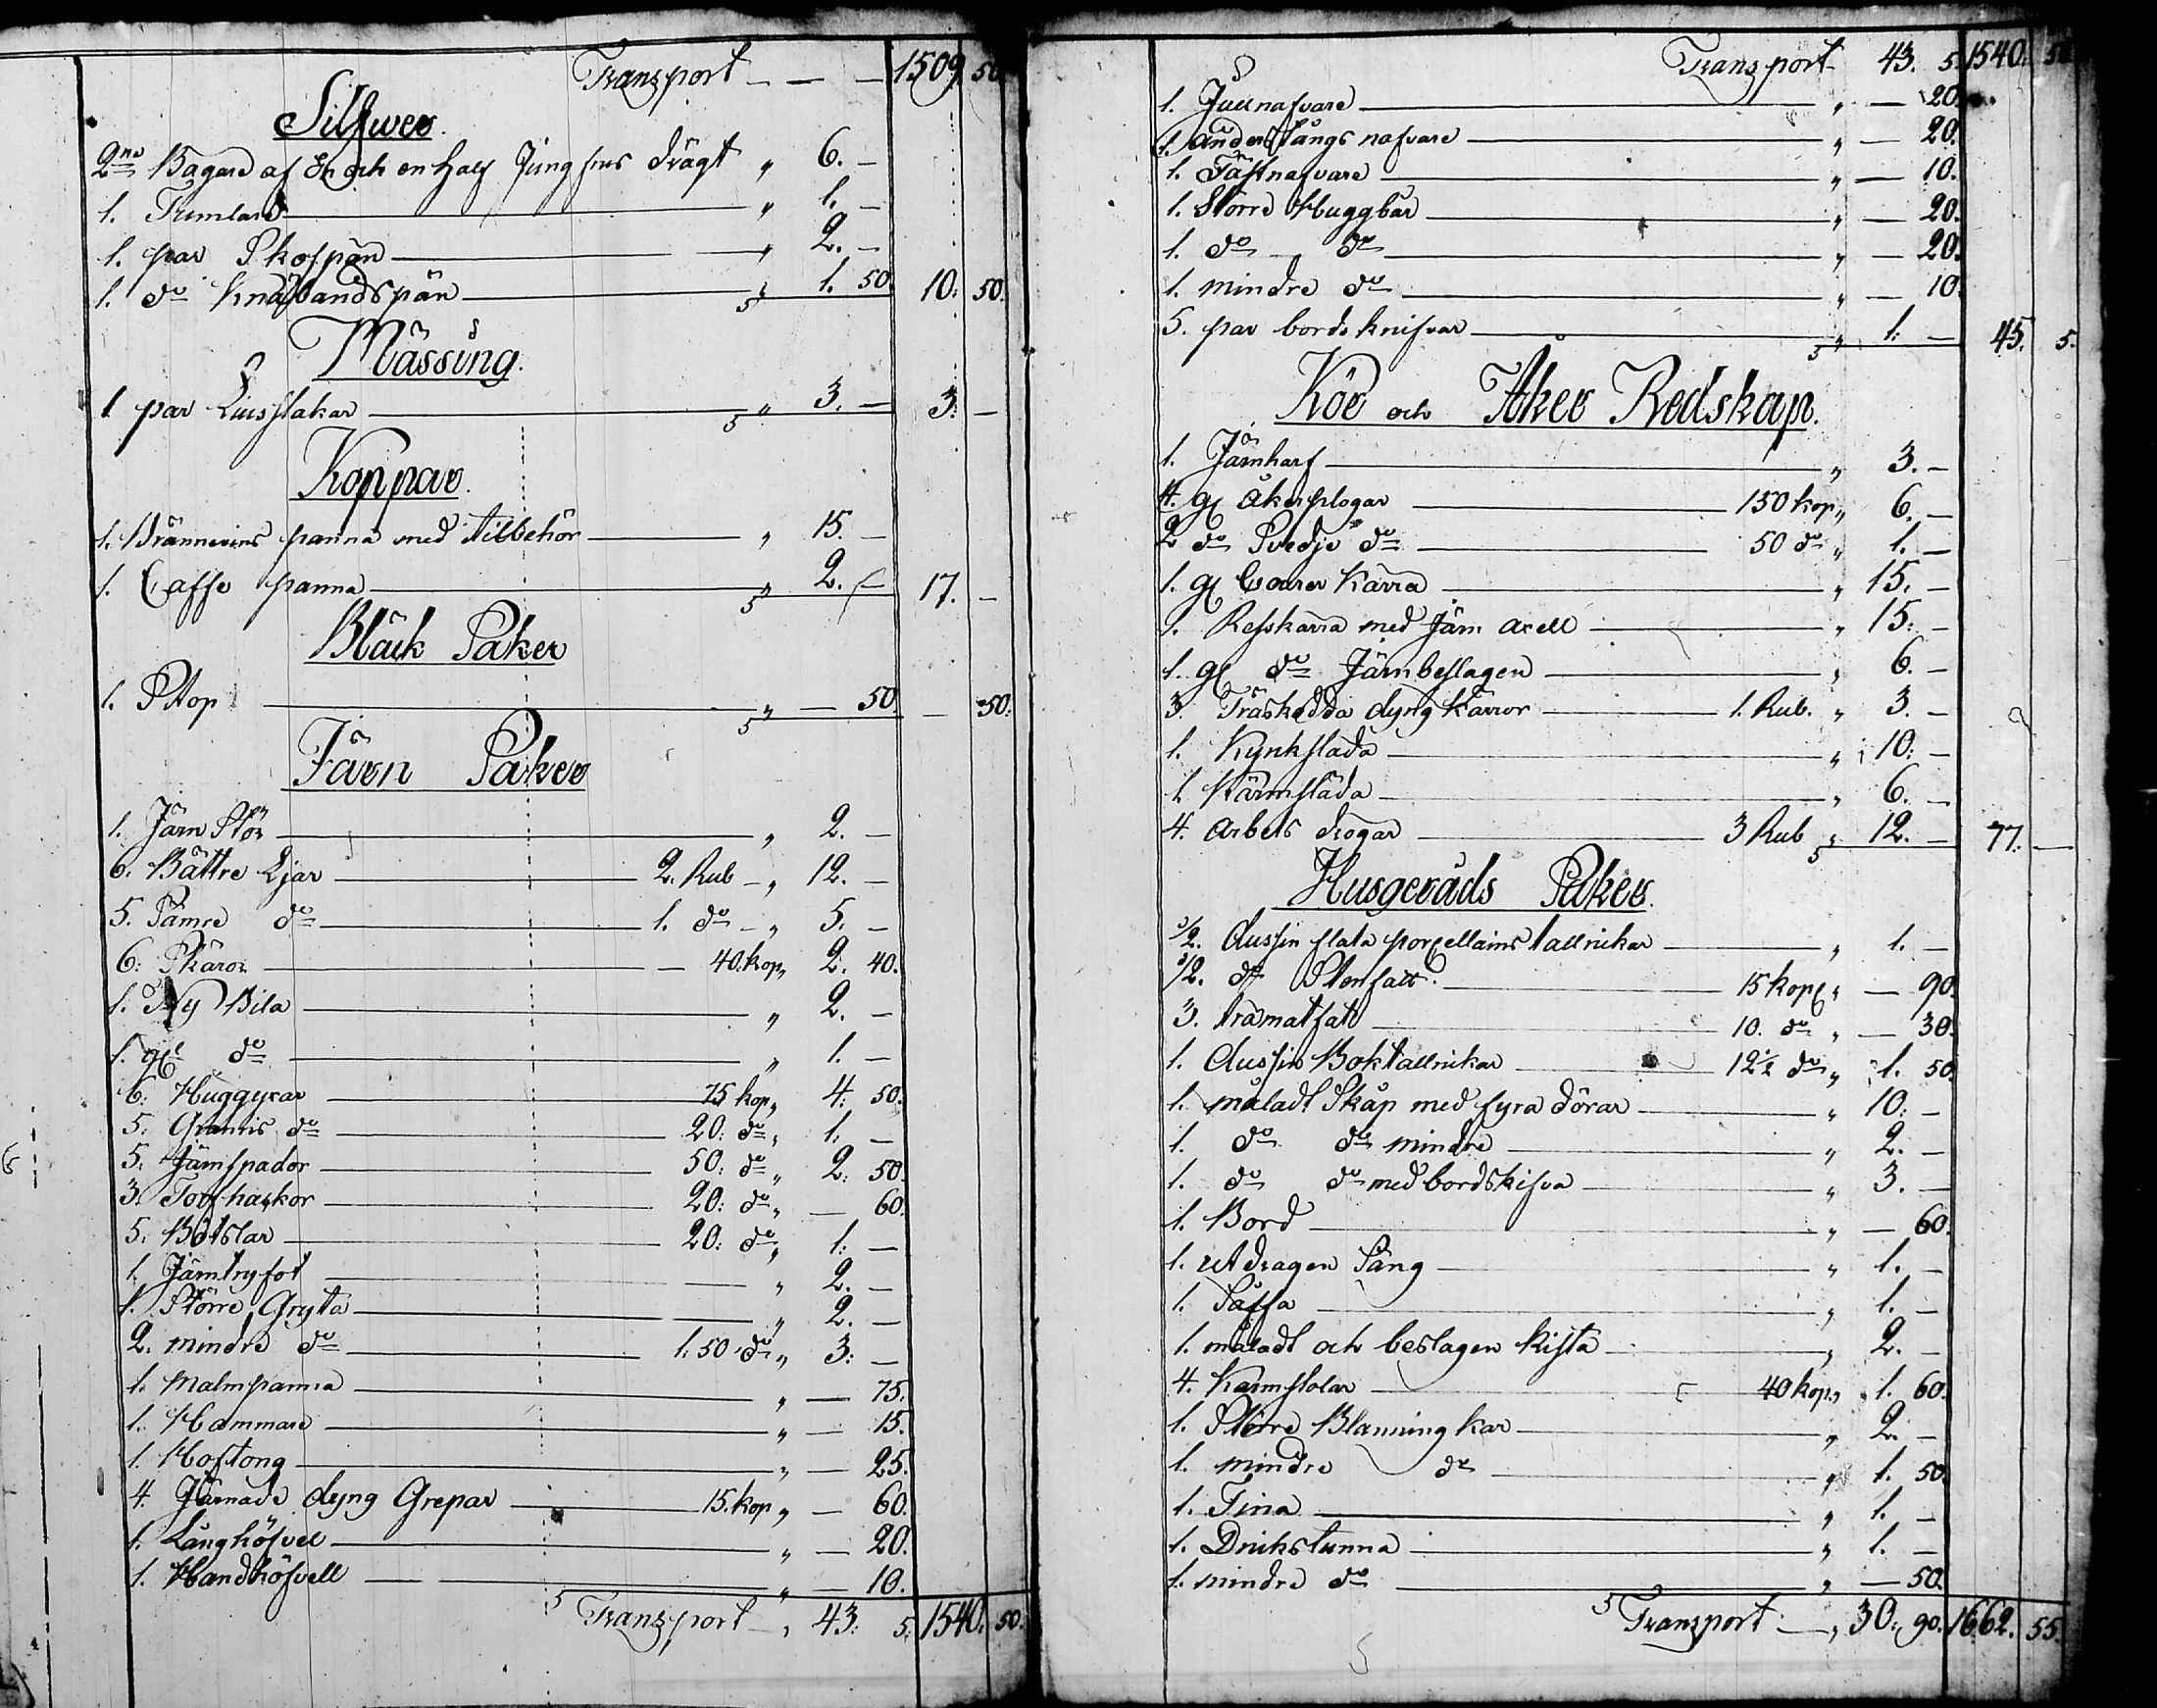 Transport — — — 1509. 50
Silfwer.
2ne Bägare af En och en half Jungfrus drägt „ 6. —
1. Tumlare „ 1. —
1. par Skospän „ 2. —
1. do Knäbandspän „ 1. 50. 10. 50.
Mässing.
1 par Liusstakar „ 3. — 3. —
Koppar.
1. Brännevins panna med tilbehör „ 15. —
1. Caffe panna „ 2. — 17. —
Bläck Saker
1. Stop „ — 50. — 50.
Järn Saker
1. Järn Stör „ 2. —
6. Bättre Ljar 2. Rub — „ 12. —
5. Sämre do 1. do — „ 5. —
6. Skäror 40. kop „ 2. 40.
1. Ny Bila „ 2. —
1. gl do „ 1. —
6. Huggyxar 75 kop „ 4. 50.
5. do 20. do „ 1. —
5. Järnspador 50. do „ 2. 50.
3. Torfhackor 20. do „ — 60.
5. 20. do „ 1. —
1. Järntryfot „ 2. —
1. Större Gryta „ 2. —
2. mindre do 1. 50. do „ 3. —
1. Malmpanna „ — 75.
1. Hammare „ — 15.
1. Hoftong „ — 25.
4. Järnade dyng Grepar 15. kop „ — 60.
1. Långhöfvel „ — 20.
1. Handhöfvell „ — 10.
Transport — „ 43. 5. 1540. 50.
Transport 43. 5. 1540. 50
1. JuLnafvare „ — 20.
1. nafvare „ — 20.
1. Fästnafvare „ — 10.
1. Större Huggbär „ — 20.
1. do — do „ — 20.
1. mindre do „ — 10.
5. par bords knifvar „ 1. — 45. 5.
Kör och Åker Redskap.
1. Järnharf „ 3. —
4. gl åkerplogar 150 kop „ 6. —
2 do Svedje do 50 do „ 1. —
1. gl Kärra „ 15. —
1. Resskärra med Järn axell „ 15. —
1. gl do Järnbeslagen „ 6. —
3. Träskodda dyng Kärror 1. Rub. „ 3. —
1. Kyrkslada „ 10. —
1. Kärmsläda „ 6. —
4. Arbets drögar 3 Rub „ 12. — 77. —
Husgeråds Saker.
1/2. dussin flata porcellains tallrickar „ 1. —
1/2. do Stenfatt. 15 kop „ — 90.
3. trämatfatt 10. do „ — 30.
1. dussin Boktallrickar 12 1/2 do „ 1. 50.
1. måladt Skåp med fyra dörar „ 10. —
1. do do mindre „ 2. —
1. do do med bordskifva „ 3. —
1. Bord „ — 60.
1. utdragen Säng „ 1. —
1. Säffa „ 1. —
1. måladt och beslagen kista „ 2. —
4. Karmstolar 40 kop „ 1. 60.
1. Större Blanning kar „ 2. —
1. mindre do „ 1. 50.
1. Tina „ 1. —
1. Drikstunna „ 1. —
1. mindre do „ — 50.
Transport — „ 30. 90. 1662. 55.